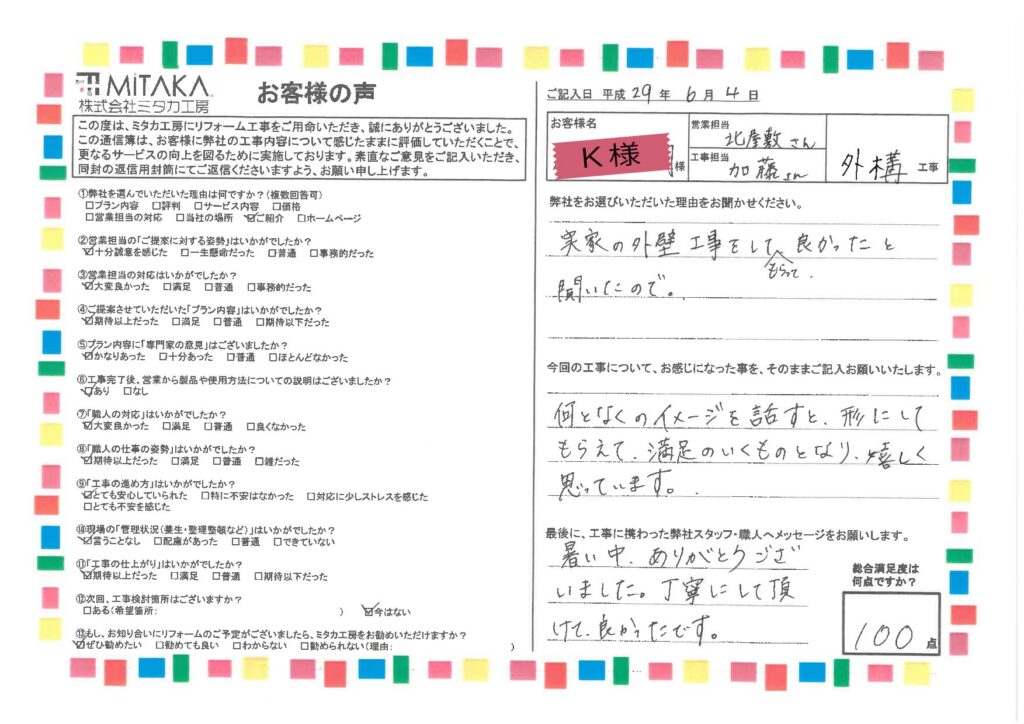 MiTAKA
株式会社ミタカ工房
お客様の声
この度は、ミタカ工房にリフォーム工事をご用命いただき、誠にありがとうございました。
この通信簿は、お客様に弊社の工事内容について感じたままに評価していただくことで、
更なるサービスの向上を図るために実施しております。素直なご意見をご記入いただき、
同封の返信用封筒にてご返信くださいますよう、お願い申し上げます。
①弊社を選んでいただいた理由は何ですか?(複数回答可)
□プラン内容 □評判 □サービス内容 □価格
□営業担当の対応 □当社の場所 ☑ご紹介 □ホームページ
②営業担当の「ご提案に対する姿勢」はいかがでしたか?
☑十分誠意を感じた □一生懸命だった □普通 □事務的だった
③営業担当の対応はいかがでしたか?
☑大変良かった □満足 □普通 □事務的だった
④ご提案させていただいた「プラン内容」はいかがでしたか?
☑期待以上だった □満足 □普通 □期待以下だった
⑤プラン内容に「専門家の意見」はございましたか?
☑かなりあった □十分あった □普通 □ほとんどなかった
⑥工事完了後、営業から製品や使用方法についての説明はございましたか?
☑あり □なし
⑦「職人の対応」はいかがでしたか?
☑大変良かった □満足 □普通 □良くなかった
⑧「職人の仕事の姿勢」はいかがでしたか?
☑期待以上だった □満足 □普通 □雑だった
⑨「工事の進め方」はいかがでしたか?
☑とても安心していられた □特に不安はなかった □対応に少しストレスを感じた
□とても不安を感じた
⑩現場の「管理状況(養生・整理整頓など)」はいかがでしたか?
☑言うことなし □配慮があった □普通 □できていない
⑪「工事の仕上がり」はいかがでしたか?
☑期待以上だった □満足 □普通 □期待以下だった
⑫次回、工事検討箇所はございますか?
□ある(希望箇所: ) ☑今はない
⑬もし、お知り合いにリフォームのご予定がございましたら、ミタカ工房をお勧めいただけますか?
☑ぜひ勧めたい □勧めても良い □わからない □勧められない(理由: )
ご記入日 平成 29 年 6 月 4 日
お客様名
K様
様
営業担当
北屋敷さん
工事担当
加藤さん
外構 工事
弊社をお選びいただいた理由をお聞かせください。
実家の外壁工事をして、良かったと
もらって
聞いたので。
今回の工事について、お感じになった事を、そのままご記入お願いいたします。
何となくのイメージを話すと、形にして
もらえて、満足のいくものとなり、嬉しく
思っています。
最後に、工事に携わった弊社スタッフ・職人へメッセージをお願いします。
暑い中、ありがとうござ
いました。丁寧にして頂
けて、良かったです。
総合満足度は
何点ですか?
100 点